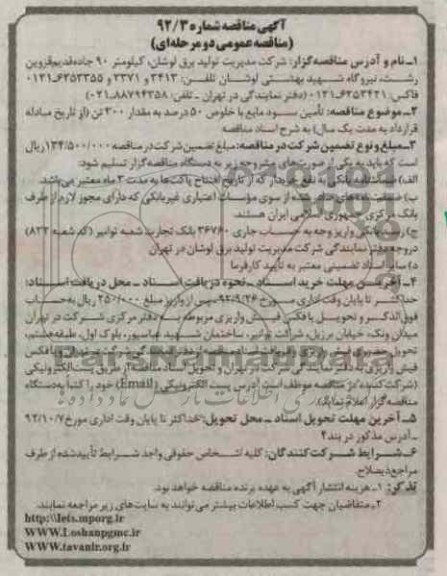 آگهی مناقصه شماره ۹۲/۳
(مناقصه عمومی دو مرحله‌ای)
۱ـ نام و آدرس مناقصه‌گزار: شرکت مدیریت تولید برق لوشان، کیلومتر ۹۰ جاده قدیم قزوین
رشت، نیروگاه شهید بهشتی لوشان تلفن: ۳۴۱۳ و ۳۳۷۱ و ۶۲۵۳۳۵۵-۰۱۳۱
فاکس: ۶۲۵۳۴۲۱-۰۱۳۱ (دفتر نمایندگی در تهران ـ تلفن: ۸۸۷۹۴۳۵۸-۰۲۱)
۲ـ موضوع مناقصه: تأمین سود مایع با خلوص ۵۰ درصد به مقدار ۳۰۰ تن (از تاریخ مبادله
قرارداد به مدت یک سال) به شرح اسناد مناقصه
۳ـ مبلغ و نوع تضمین شرکت در مناقصه: مبلغ تضمین شرکت در مناقصه ۱۳۴/۵۰۰/۰۰۰ ریال
است که باید به یکی از صورت‌های مشروحه زیر به دستگاه مناقصه‌گزار تسلیم شود:
الف) ضمانتنامه بانکی به نفع خریدار که از تاریخ افتتاح پاکت‌ها به مدت ۳ ماه معتبر می‌باشد.
ب) ضمانت‌نامه‌های از سوی مؤسسات اعتباری غیربانکی که دارای مجوز لازم از طرف
بانک مرکزی جمهوری اسلامی ایران هستند.
ج) رسید بانکی واریز وجه به حساب جاری ۳۶۷۶۰ بانک تجارت شعبه توانیر (کد شعبه ۸۲۲)
در وجه دفتر نمایندگی شرکت مدیریت تولید برق لوشان در تهران
د) سایر اسناد تضمینی معتبر به تأیید کارفرما
۴ـ آخرین مهلت خرید اسناد ـ نحوه دریافت اسناد ـ محل دریافت اسناد:
حداکثر تا پایان وقت اداری مورخ ۹۲/۹/۲۶ پس از واریز مبلغ ۲۵۰/۰۰۰ ریال به حساب
فوق‌الذکر و تحویل یا فکس فیش واریزی مربوطه به دفتر مرکزی شرکت در تهران
میدان ونک، خیابان برزیل، شرکت توانیر، ساختمان شهید عباسپور، بلوک اول، طبقه هشتم،
تحویل
فیش واریزی به دفتر نمایندگی شرکت در تهران و تحویل اسناد مناقصه از طریق پست الکترونیکی
(شرکت‌کننده در مناقصه موظف است آدرس پست الکترونیکی (Email) خود را کتباً به دستگاه
مناقصه‌گزار اعلام نماید.)
۵ـ آخرین مهلت تحویل اسناد ـ محل تحویل: حداکثر تا پایان وقت اداری مورخ ۹۲/۱۰/۷
ـ آدرس مذکور در بند ۴
۶ـ شرایط شرکت‌کنندگان: کلیه اشخاص حقوقی واجد شرایط تأیید شده از طرف
مراجع ذیصلاح.
تذکر: ۱ـ هزینه انتشار آگهی به عهده برنده مناقصه خواهد بود.
۲ـ متقاضیان جهت کسب اطلاعات بیشتر می‌توانند به سایت‌های زیر مراجعه نمایند.
http:\\Iets.mporg.ir
WWW.Loshanpgmc.ir
WWW.tavanir.org.ir